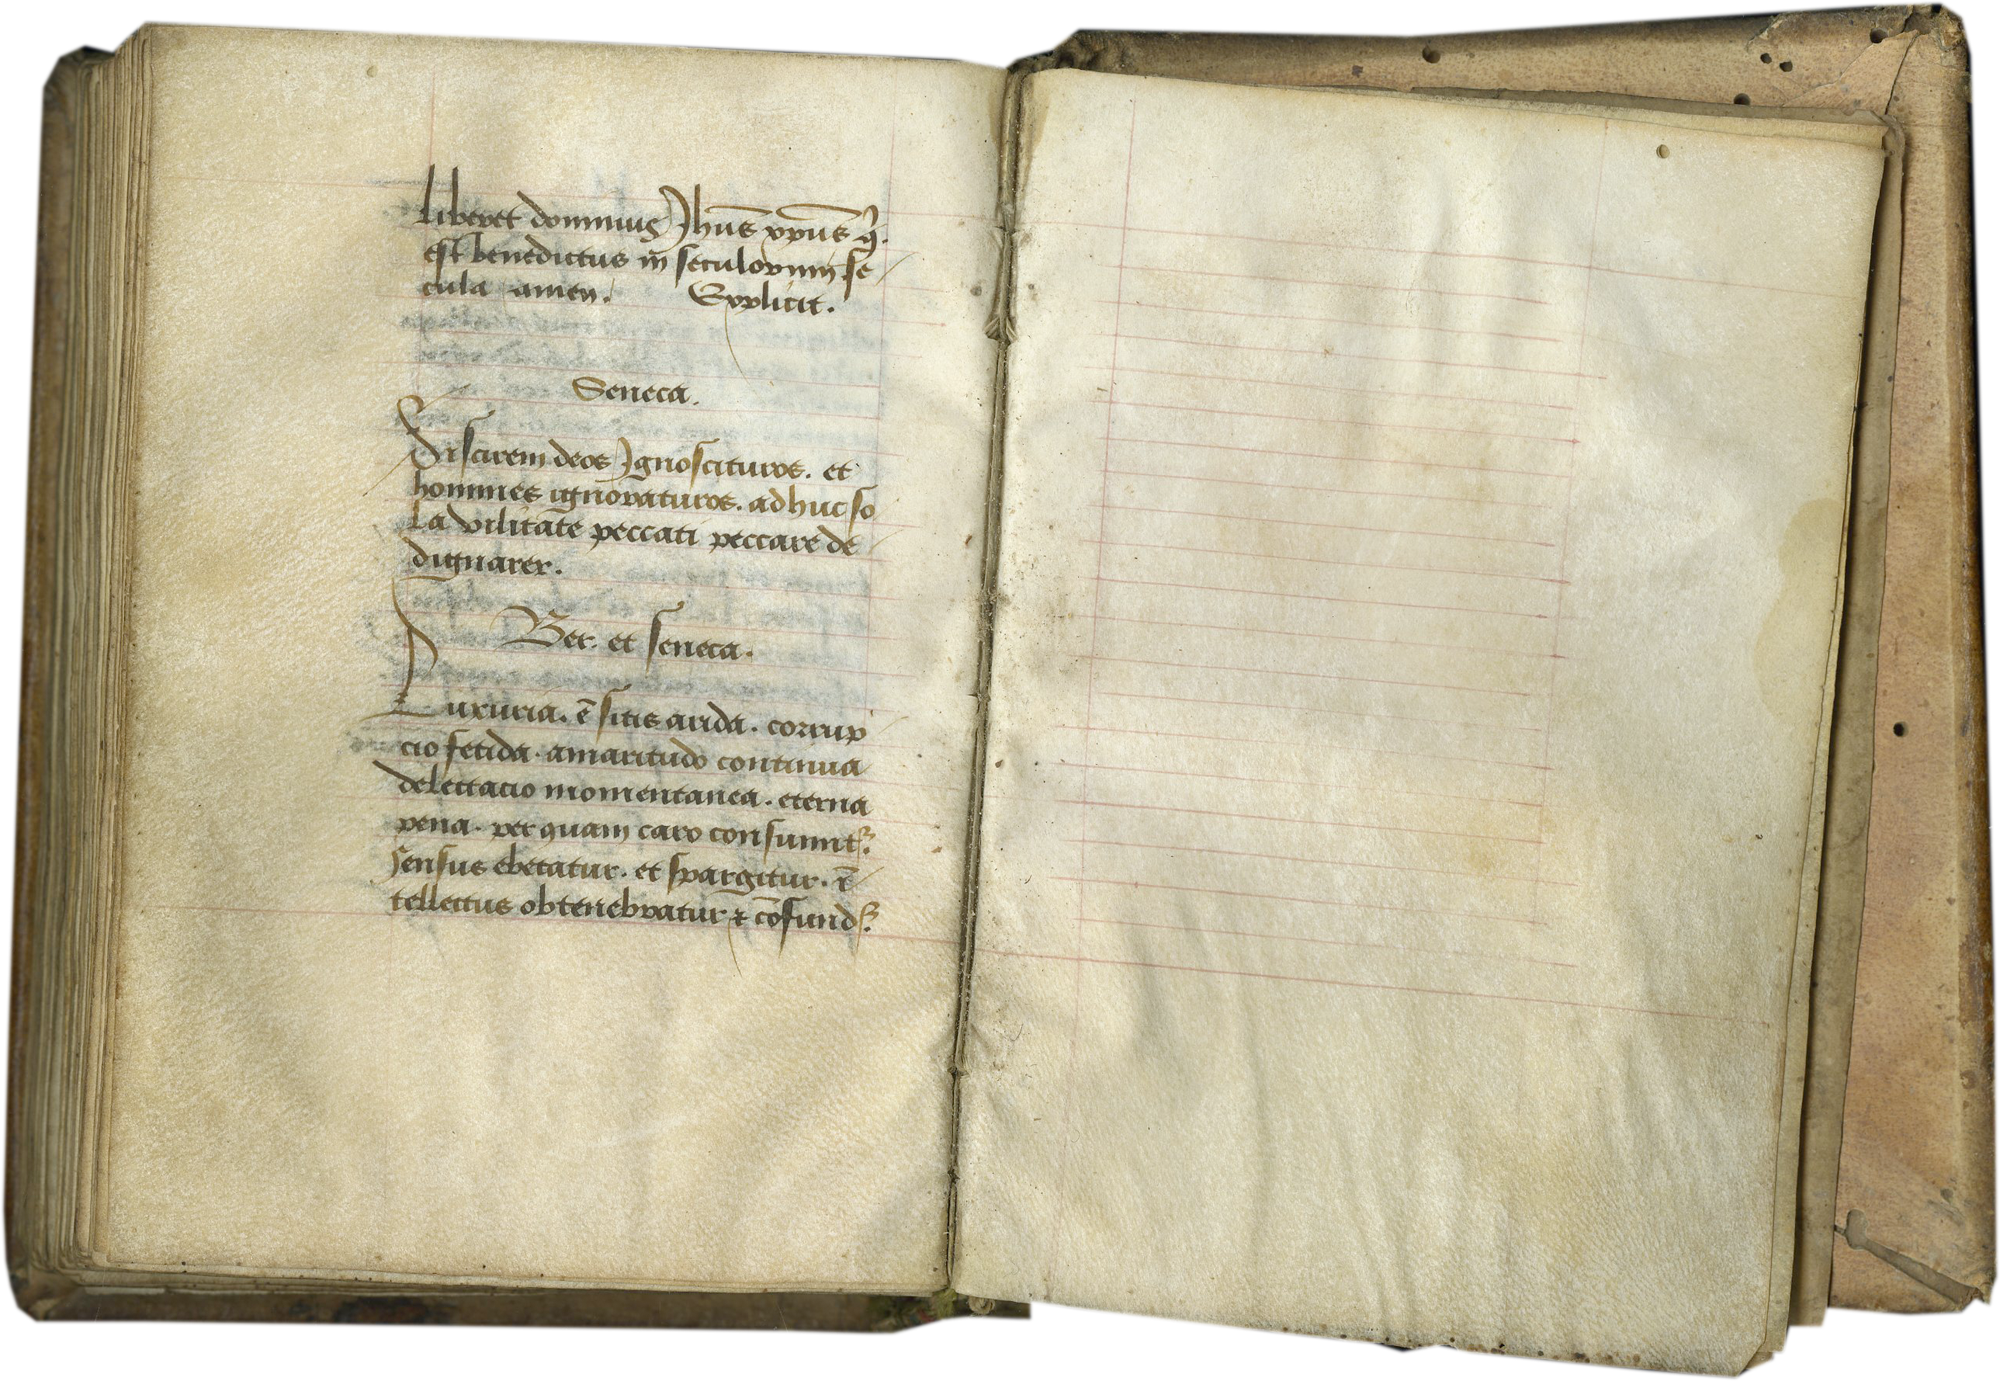 liberet dominus Jhūs xp̄us q̄.
est benedictus in seculorum se
cula amen. Explicit.
Seneca.
Si scirem deos Jgnoscituros. et
homines ignoraturos. adhuc so
la vilitate peccati peccare de
dignarer.
Ber. et seneca.
Luxuria. ē sitis arida. corrup
cio fetida. amaritudo continua
delectacio momentanea. eterna
pena. per quam caro consumit᷑.
sensus ebetatur. et spargitur. ī
tellectus obtenebratur ⁊ cōfund᷑.